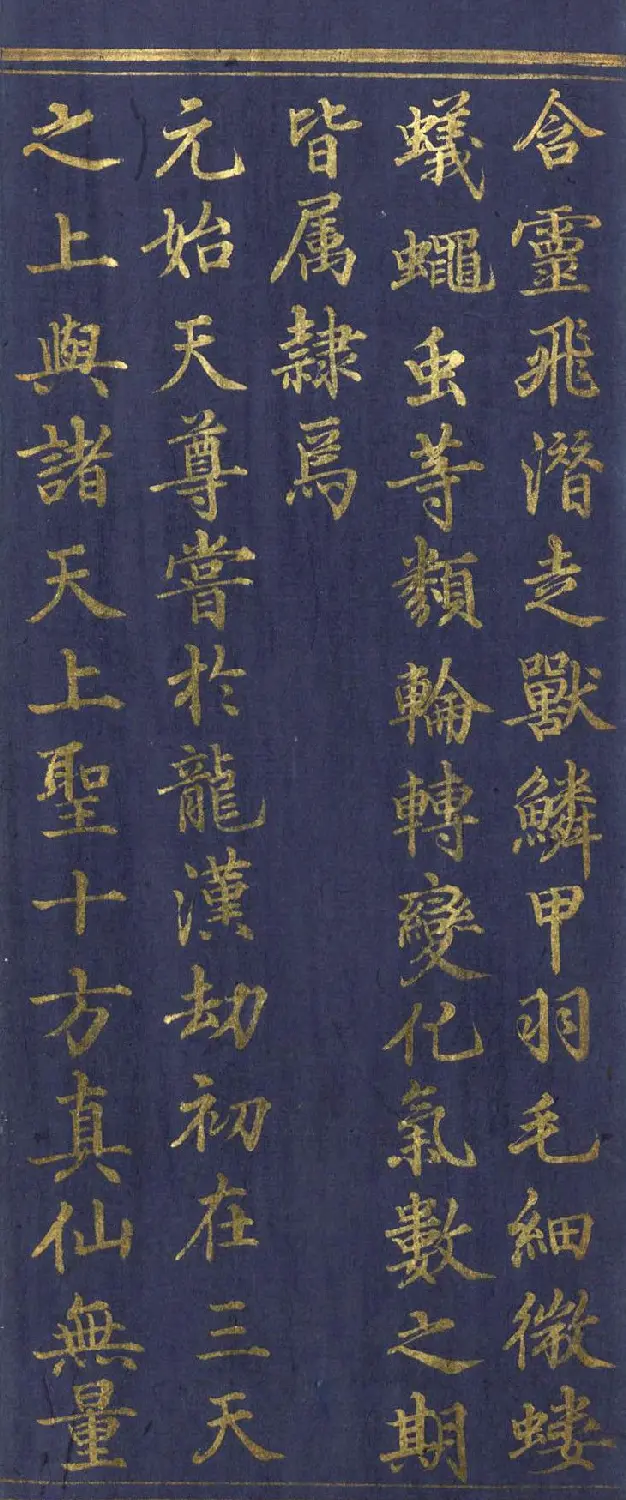 含靈飛潛走獸鱗甲羽毛細微螻
蟻蠅虫等類輪轉變化氣數之期
皆属隷焉
元始天尊嘗於龍漢劫初在三天
之上與諸天上聖十方真仙無量